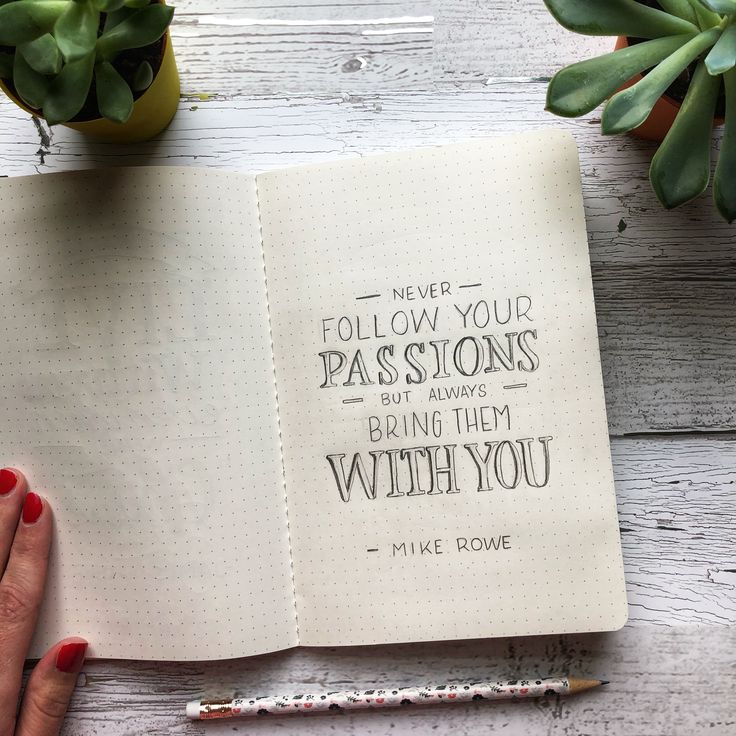 — NEVER —
FOLLOW YOUR
PASSIONS
— BUT ALWAYS —
BRING THEM
WITH YOU
- MIKE ROWE